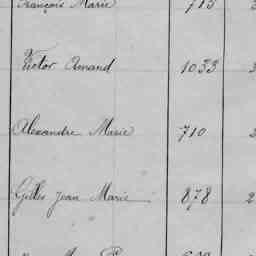 François Marie 715
Victor Amand 1033 3
Alexandre Marie 710 2
Gilles Jean Marie 878 2